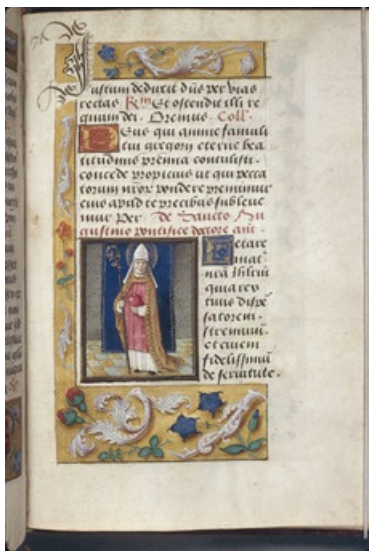 Iustum deduxit dñs per vias
rectas R̃m Et ostendit illi re
gnum dei. Oremus Coll.
Deus qui anime famuli
tui gregorij eterne bea
titudinis premia contulisti.
concede propicius ut qui pecca
torum nrõr pondere premimur
eius apud te precibus subleue
mur Per De Sancto Au
gustino pontifice doctore añt.
Letare
mat̃
nr̃a Ihrlm̃
quia rex
tuus dispẽ
satorem
strenuũ.
et ciuem
fidelissimũ
de seruitute.